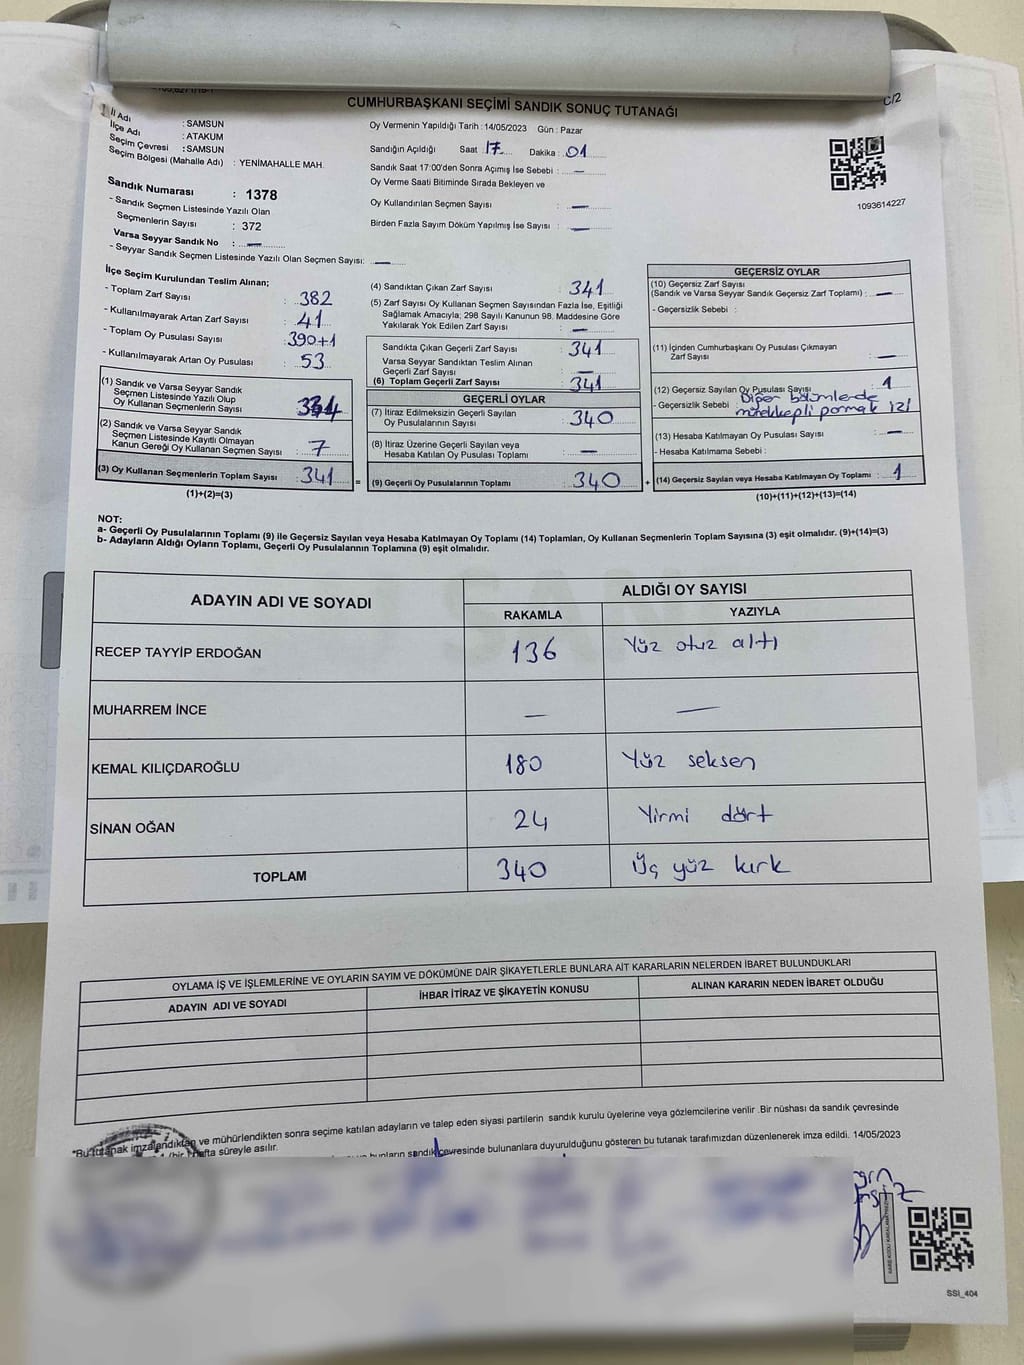 CUMHURBAŞKANI SEÇİMİ SANDIK SONUÇ TUTANAĞI
C/2
İl Adı : SAMSUN
İlçe Adı : ATAKUM
Seçim Çevresi : SAMSUN
Seçim Bölgesi (Mahalle Adı) : YENİMAHALLE MAH.
Sandık Numarası : 1378
- Sandık Seçmen Listesinde Yazılı Olan
Seçmenlerin Sayısı : 372
Varsa Seyyar Sandık No : —
- Seyyar Sandık Seçmen Listesinde Yazılı Olan Seçmen Sayısı: —
Oy Vermenin Yapıldığı Tarih : 14/05/2023 Gün : Pazar
Sandığın Açıldığı Saat : 17 Dakika : 01
Sandık Saat 17:00'den Sonra Açımış İse Sebebi : —
Oy Verme Saati Bitiminde Sırada Bekleyen ve
Oy Kullandırılan Seçmen Sayısı : —
Birden Fazla Sayım Döküm Yapılmış İse Sayısı : —
1093614227
İlçe Seçim Kurulundan Teslim Alınan;
- Toplam Zarf Sayısı : 382
- Kullanılmayarak Artan Zarf Sayısı : 41
- Toplam Oy Pusulası Sayısı : 390+1
- Kullanılmayarak Artan Oy Pusulası : 53
(1) Sandık ve Varsa Seyyar Sandık
Seçmen Listesinde Yazılı Olup
Oy Kullanan Seçmenlerin Sayısı :
(2) Sandık ve Varsa Seyyar Sandık
Seçmen Listesinde Kayıtlı Olmayan
Kanun Gereği Oy Kullanan Seçmen Sayısı : 7
(3) Oy Kullanan Seçmenlerin Toplam Sayısı : 341 =
(1)+(2)=(3)
(4) Sandıktan Çıkan Zarf Sayısı : 341
(5) Zarf Sayısı Oy Kullanan Seçmen Sayısından Fazla İse, Eşitliği
Sağlamak Amacıyla; 298 Sayılı Kanunun 98. Maddesine Göre
Yakılarak Yok Edilen Zarf Sayısı : —
Sandıkta Çıkan Geçerli Zarf Sayısı : 341
Varsa Seyyar Sandıktan Teslim Alınan
Geçerli Zarf Sayısı : —
(6) Toplam Geçerli Zarf Sayısı : 341
GEÇERLİ OYLAR
(7) İtiraz Edilmeksizin Geçerli Sayılan
Oy Pusulalarının Sayısı : 340
(8) İtiraz Üzerine Geçerli Sayılan veya
Hesaba Katılan Oy Pusulası Toplamı : —
(9) Geçerli Oy Pusulalarının Toplamı : 340 +
GEÇERSİZ OYLAR
(10) Geçersiz Zarf Sayısı
(Sandık ve Varsa Seyyar Sandık Geçersiz Zarf Toplamı) : —
- Geçersizlik Sebebi :
(11) İçinden Cumhurbaşkanı Oy Pusulası Çıkmayan
Zarf Sayısı : —
(12) Geçersiz Sayılan Oy Pusulası Sayısı : 1
- Geçersizlik Sebebi : Diğer bölümlerde
mürekkepli parmak izi
(13) Hesaba Katılmayan Oy Pusulası Sayısı : —
- Hesaba Katılmama Sebebi :
(14) Geçersiz Sayılan veya Hesaba Katılmayan Oy Toplamı : 1
(10)+(11)+(12)+(13)=(14)
NOT:
a- Geçerli Oy Pusulalarının Toplamı (9) ile Geçersiz Sayılan veya Hesaba Katılmayan Oy Toplamı (14) Toplamları, Oy Kullanan Seçmenlerin Toplam Sayısına (3) eşit olmalıdır. (9)+(14)=(3)
b- Adayların Aldığı Oyların Toplamı, Geçerli Oy Pusulalarının Toplamına (9) eşit olmalıdır.
ADAYIN ADI VE SOYADI ALDIĞI OY SAYISI
RAKAMLA YAZIYLA
RECEP TAYYİP ERDOĞAN 136 Yüz otuz altı
MUHARREM İNCE — —
KEMAL KILIÇDAROĞLU 180 Yüz seksen
SİNAN OĞAN 24 Yirmi dört
TOPLAM 340 Üç yüz kırk
OYLAMA İŞ VE İŞLEMLERİNE VE OYLARIN SAYIM VE DÖKÜMÜNE DAİR ŞİKAYETLERLE BUNLARA AİT KARARLARIN NELERDEN İBARET BULUNDUKLARI
ADAYIN ADI VE SOYADI İHBAR İTİRAZ VE ŞİKAYETİN KONUSU ALINAN KARARIN NEDEN İBARET OLDUĞU
*Bu tutanak imzalandıktan ve mühürlendikten sonra seçime katılan adayların ve talep eden siyasi partilerin sandık kurulu üyelerine veya gözlemcilerine verilir .Bir nüshası da sandık çevresinde
hafta süreyle asılır.
bunların sandık çevresinde bulunanlara duyurulduğunu gösteren bu tutanak tarafımızdan düzenlenerek imza edildi. 14/05/2023
SSİ_404